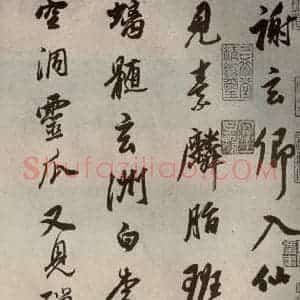 謝玄卿入仙
見素麟脂班
螭髓玄洲白柰
空洞靈瓜又見
Shufaziliao.com